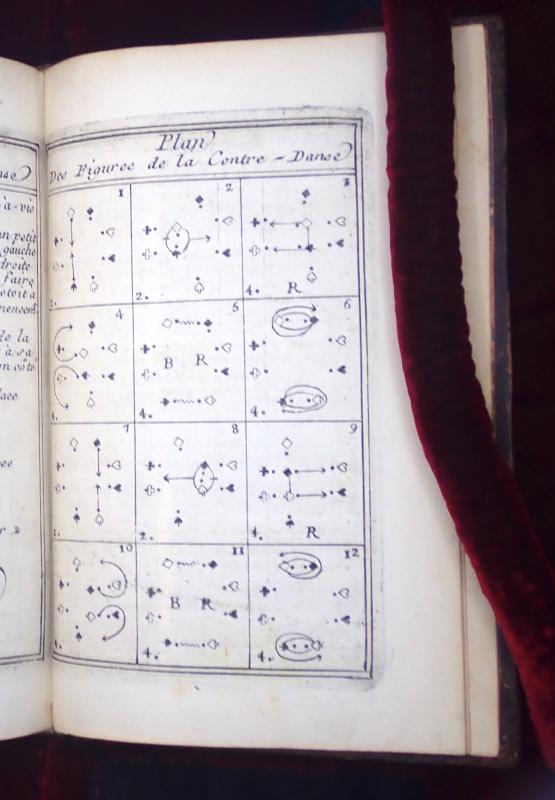 Plan
Des Figures de la Contre - Danse
1 2 3
2. 4. R
4 5 6
B R
4. 4. 4.
7 8 9
1. 2. 4. R
10 11 12
B R
4. 4. 4.
à-vis
un petit
gauche
droite
faire
de la
à sa
on côté